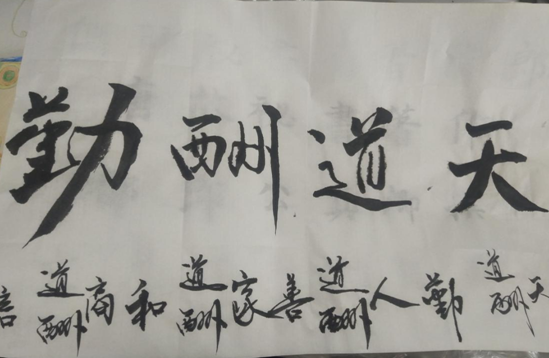 天道酬勤
天道酬勤人道酬善家道酬和商道酬